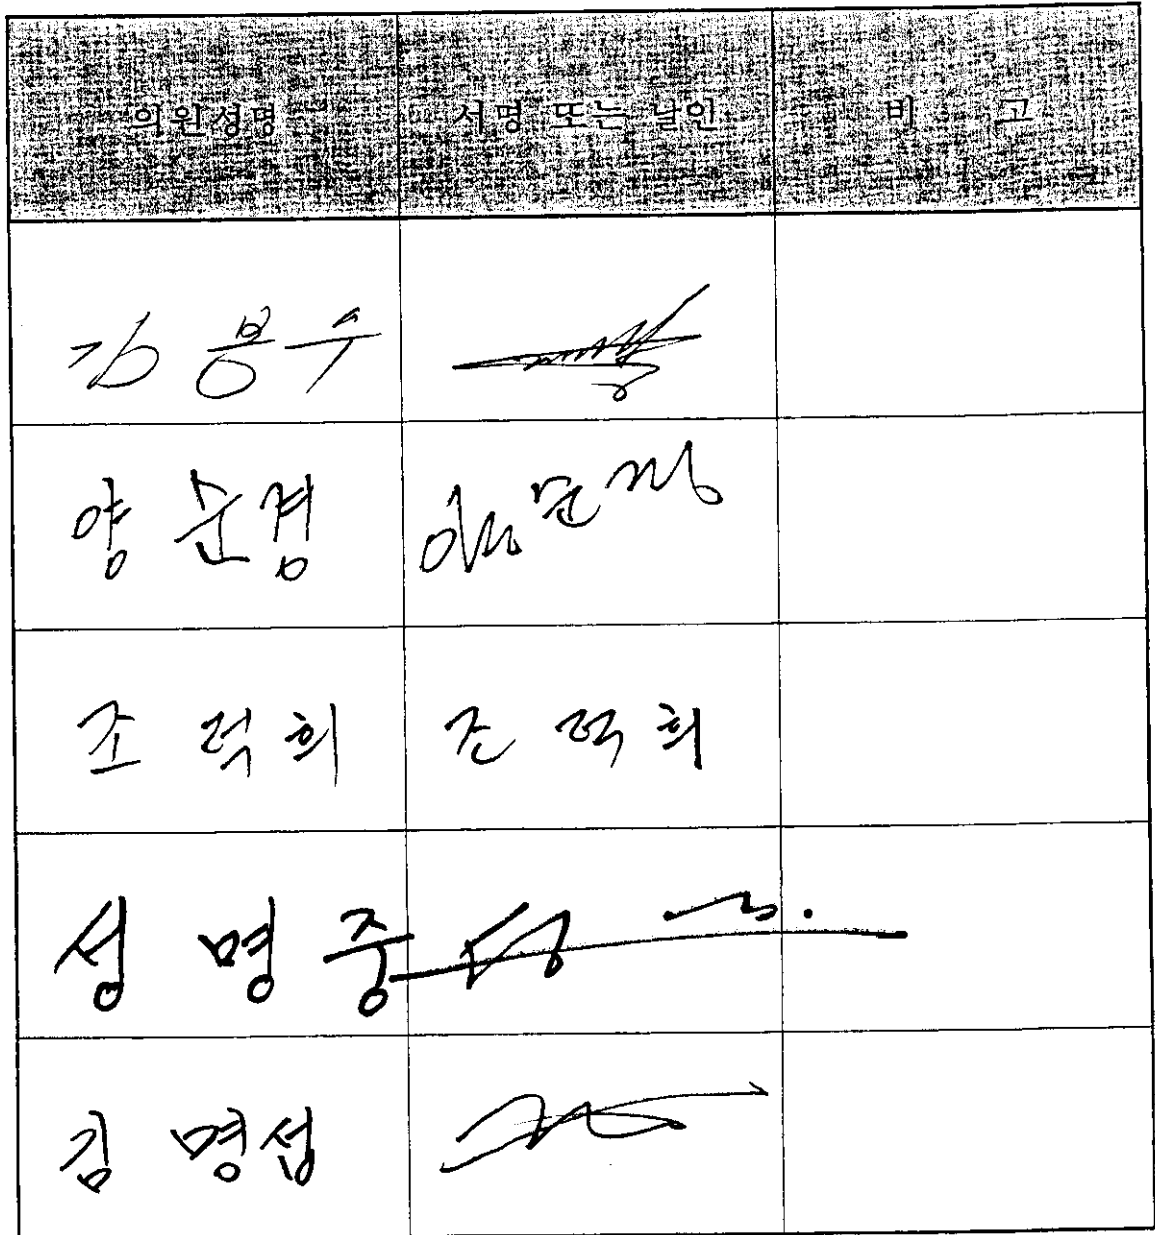 의원성명 서명 또는 날인 비 고
김 봉수
양 순경
조 덕희 조 덕희
성 명 중 성
김 명섭